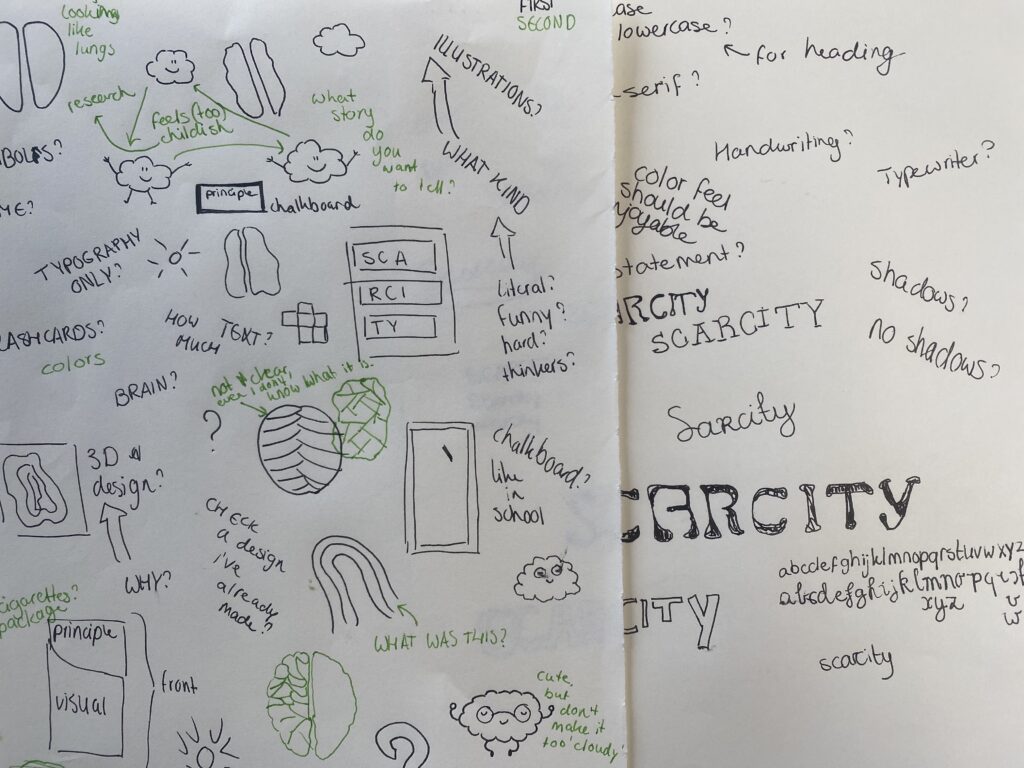 looking
like
lungs
FIRST
SECOND
research
feels (too)
childish
what
story
do
you
want
to tell?
ILLUSTRATIONS?
WHAT KIND
literal?
funny?
hard?
thinkers?
principle
chalkboard
TYPOGRAPHY
ONLY?
SCA
RCI
TY
HOW
MUCH
TEXT?
colors
BRAIN?
not clear,
even I don't
know what it is.
?
3D
design?
WHY?
chalkboard?
like
in
school
CHECK
a design
i've
already
made?
WHAT WAS THIS?
cigarettes?
package
principle
visual
front
cute,
but
don't
make it
too 'cloudy'
lowercase?
for heading
-serif?
Handwriting?
Typewriter?
color feel
should be
statement?
shadows?
no shadows?
ARCITY
SCARCITY
Sarcity
CARCITY
abcdefghijklmnopqrstuvwxyz
abcdefghijklmnopqrst
xyz
CITY
scarcity